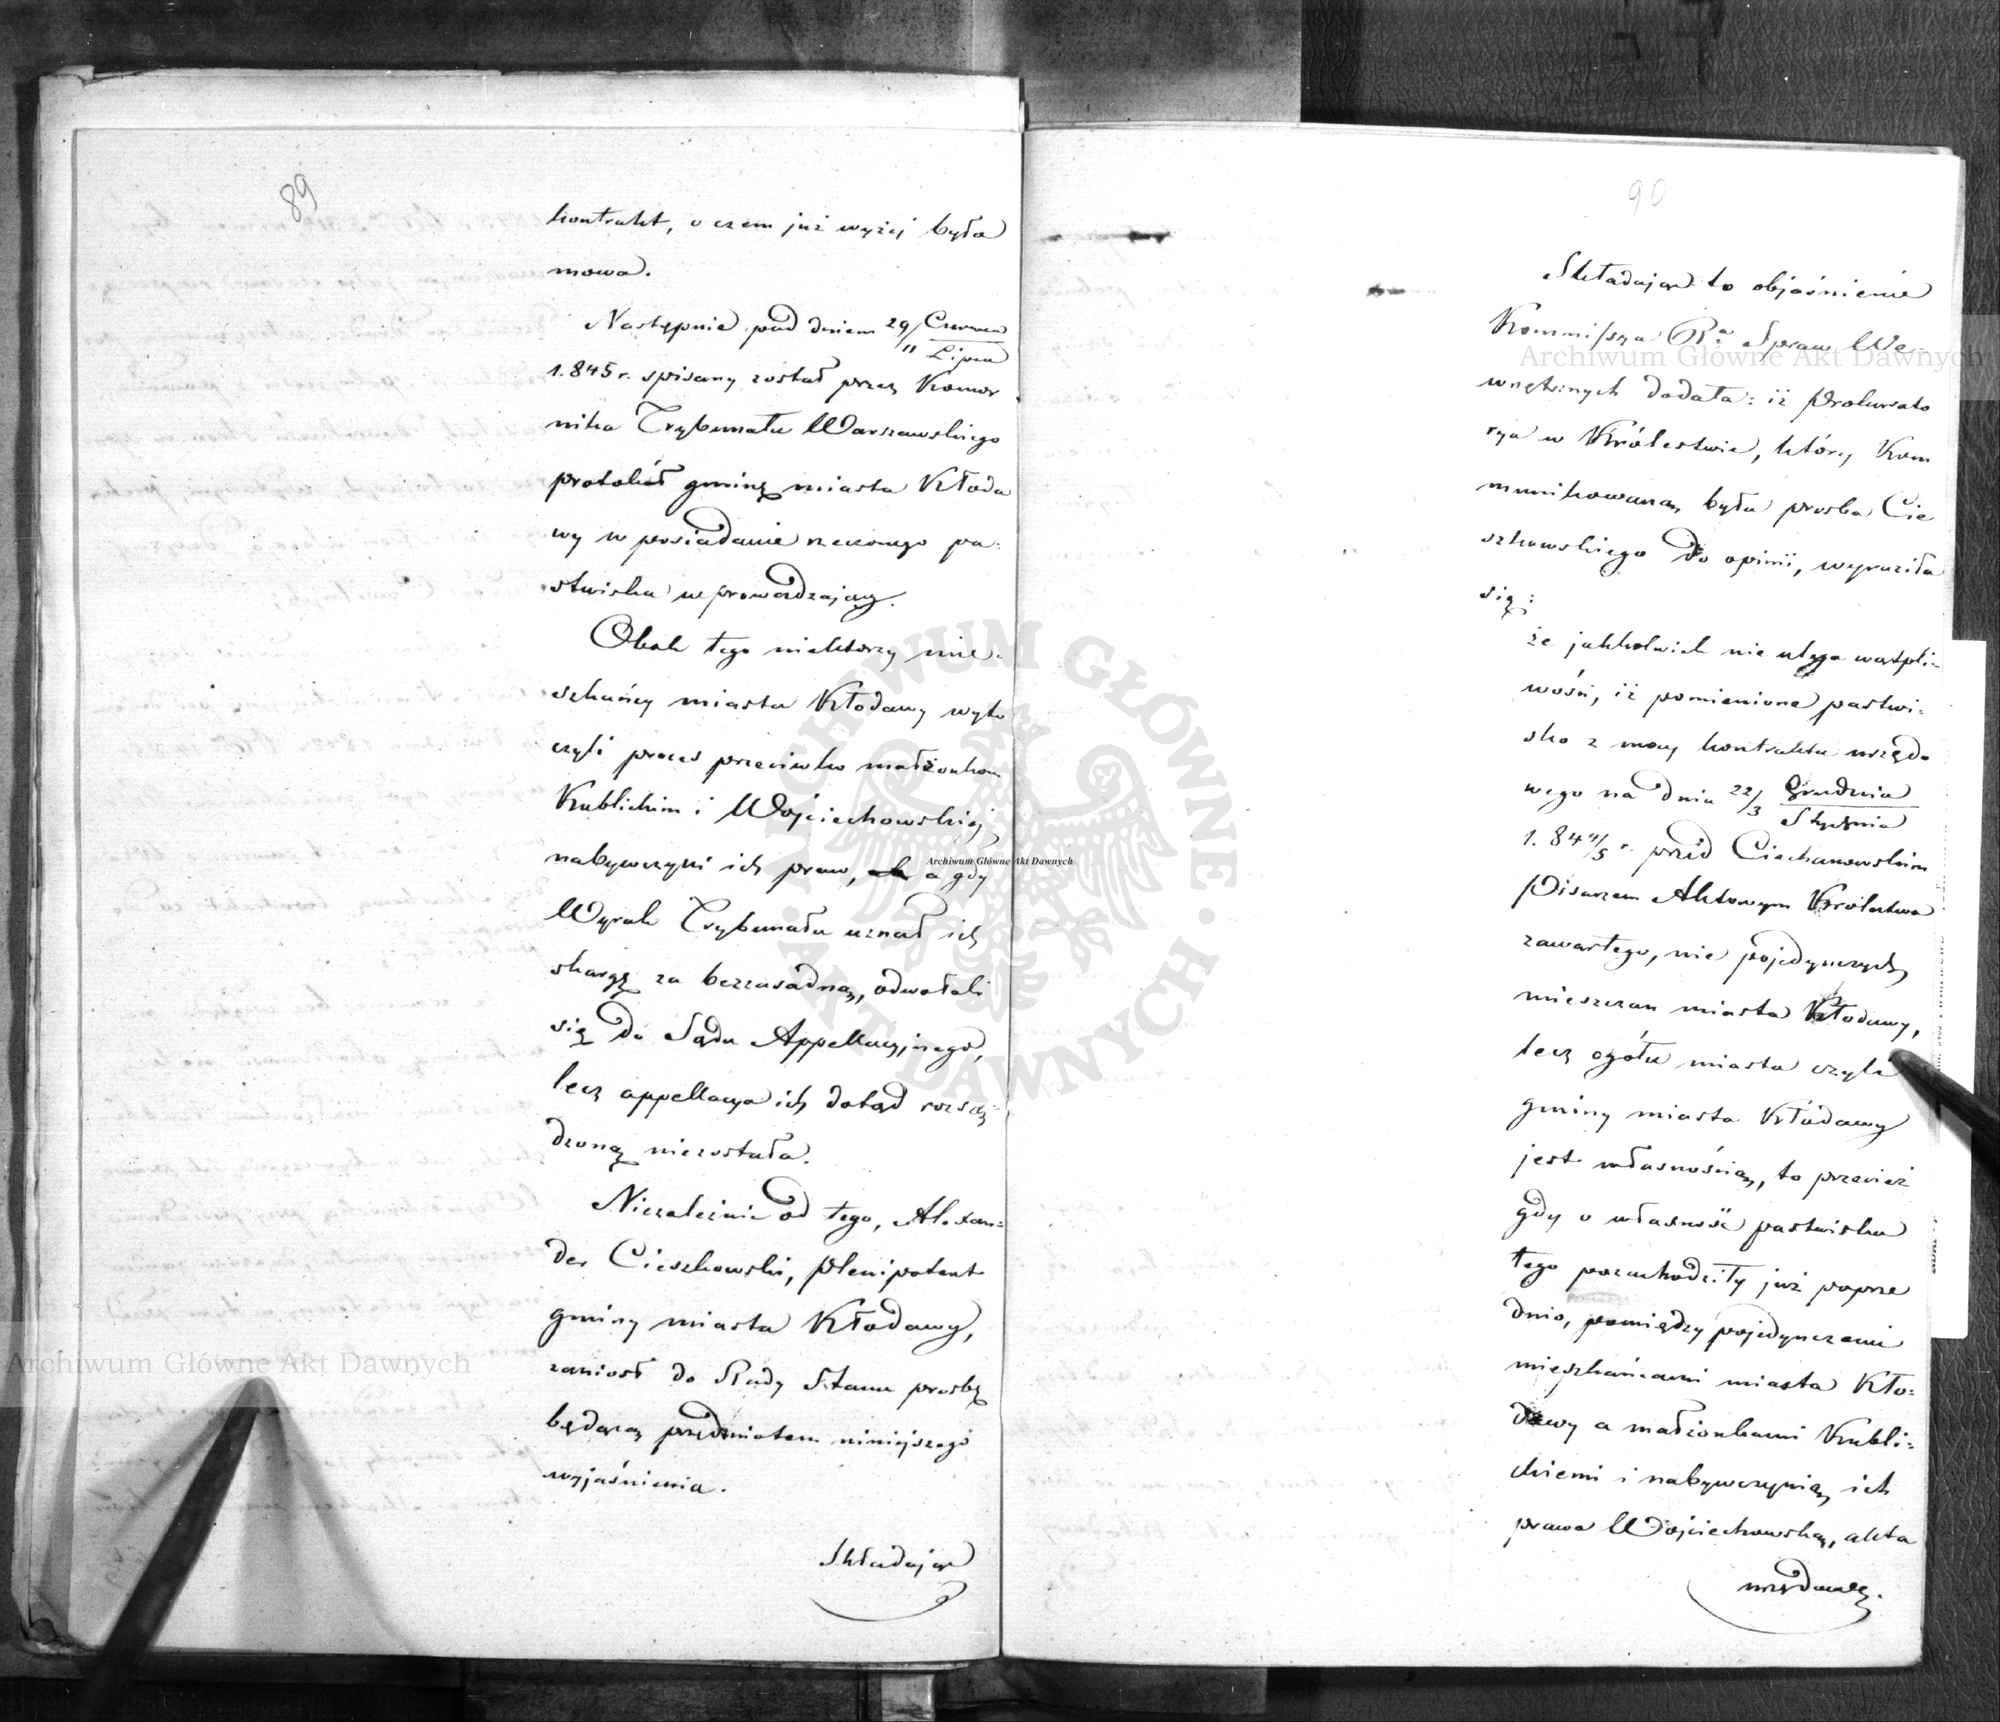 89
kontrakt, o czem już wyżej była
mowa.
Następnie pod dniem 29/11 Czerwca/Lipca
1.845 r. spisany został przez Komor
nika Trybunału Warszawskiego
protokół gminę miasta Kłoda
wy w posiadanie rzeczonego pa-
stwiska wprowadzający.
Obok tego niektórzy mie-
szkańcy miasta Kłodawy wyto
czyli proces przeciwko małżonkom
Kublickim i Wojciechowskiej
nabywczyni ich praw, a gdy
Wyrok Trybunału uznał ich
skargę za bezzasadną, odwołali
się do Sądu Appellacyjnego,
lecz appellacya ich dotąd rozsą-
dzoną niezostała.
Niezależnie od tego, Alexan-
der Cieszkowski, plenipotent
gminy miasta Kłodawy,
zaniosł do Rady Stanu prośbę
będącą przedmiotem niniejszego
wyjaśnienia.
Składając
90
Składając to objaśnienie
Kommissya Ra. Spraw We-
wnętrznych dodała: iż Prokurato
rya w Królestwie, której Kom
munikowaną była prosba Cie
szkowskiego do opinii, wyraziła
się:
że jakkolwiek nie ulega wątpli-
wości, iż pomienione pastwi-
sko z mocy kontraktu urzędo
wego na dniu 22/3 Grudnia/Stycznia
1.844/5 r. przed Ciechanowskim
Pisarzem Aktowym Królestwa
zawartego, nie pojedynczych
mieszczan miasta Kłodawy,
lecz ogółu miasta czyli
gminy miasta Kłodawy
jest własnością, to przecież
gdy o własność pastwiska
tego pozachodziły już poprze
dnio, pomiędzy pojedynczemi
mieszkańcami miasta Kło-
dawy a małżonkami Kubli-
ckiemi i nabywczynią ich
prawa Wojciechowską, akta
urzędowe.
Archiwum Główne Akt Dawnych
Archiwum Główne Akt Dawnych
Archiwum Główne Akt Dawnych
ARCHIWUM GŁÓWNE · AKT DAWNYCH ·